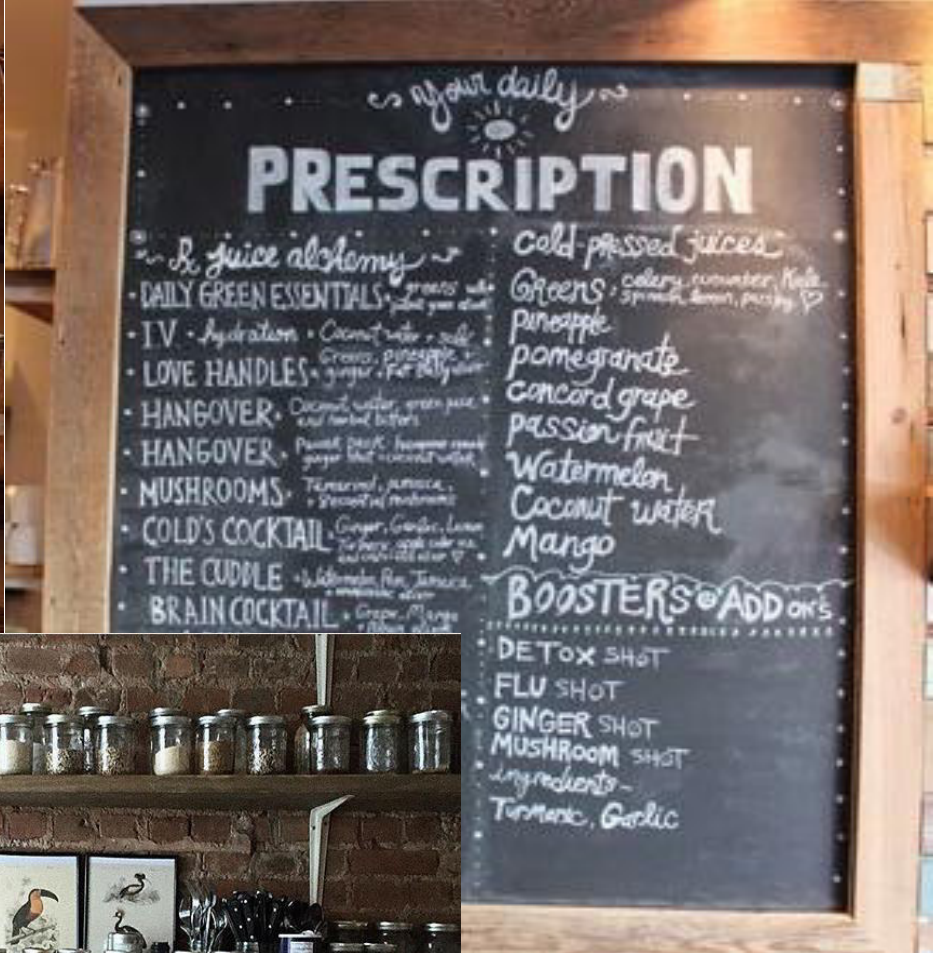 your daily
PRESCRIPTION
Rx juice alchemy
DAILY GREEN ESSENTIALS • greens
I.V • hydration • Coconut water + salt
LOVE HANDLES • Greens, pineapple +
ginger, Fat Belly
HANGOVER • Coconut water, green juice
and herbal bitters
HANGOVER •
ginger shot coconut water
MUSHROOMS • Tamarind, Jamaica,
mushrooms
COLD'S COCKTAIL • Ginger, Garlic, Lemon
Turmeric, apple cider
THE CUDDLE • Watermelon, Jamaica
BRAIN COCKTAIL • Grape, Mango
Cold-pressed juices
Greens • celery, cucumber, Kale
spinach, lemon, parsley
pineapple
pomegranate
concord grape
passion fruit
Watermelon
Coconut water
Mango
BOOSTERS ADD ONS
DETOX SHOT
FLU SHOT
GINGER SHOT
MUSHROOM SHOT
ingredients-
Turmeric, Garlic